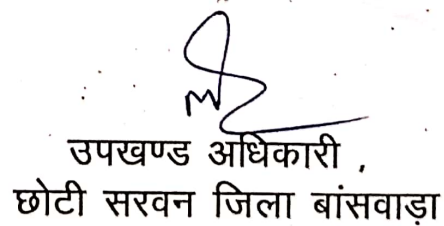 उपखण्ड अधिकारी ,
छोटी सरवन जिला बांसवाड़ा